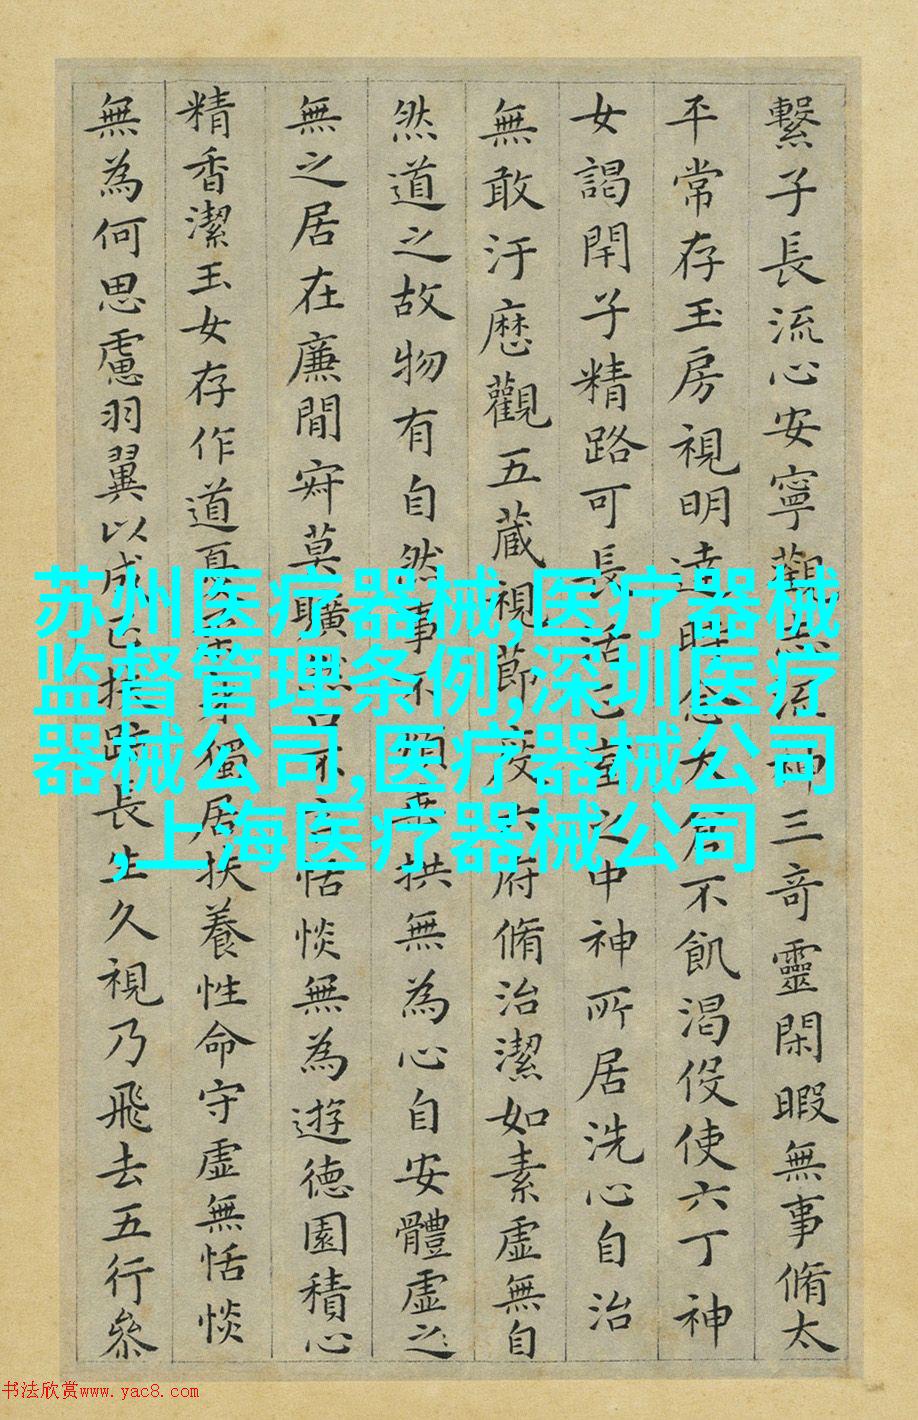 繫子長流心安寧觀志流神三奇靈閑暇無事脩太
平常存玉房視明達時念大倉不飢渴伇使六丁神
女謁閇子精路可長活正室之中神所居洗心自治
無敢汙歷觀五藏視節度六府脩治潔如素虛無自
然道之故物有自然事不煩垂拱無為心自安體虛之
無之居在廉間𡧯莫曠然口不言恬惔無為遊德園積心
精香潔玉女存作道憂柔身獨居扶養性命守虛無恬惔
無為何思慮羽翼以成正扶疎長生久視乃飛去五行參
苏州医疗器械,医疗器械
监督管理条例,深圳医疗
器械公司,医疗器械公司
,上海医疗器械公司
书法欣赏www.yac8.com